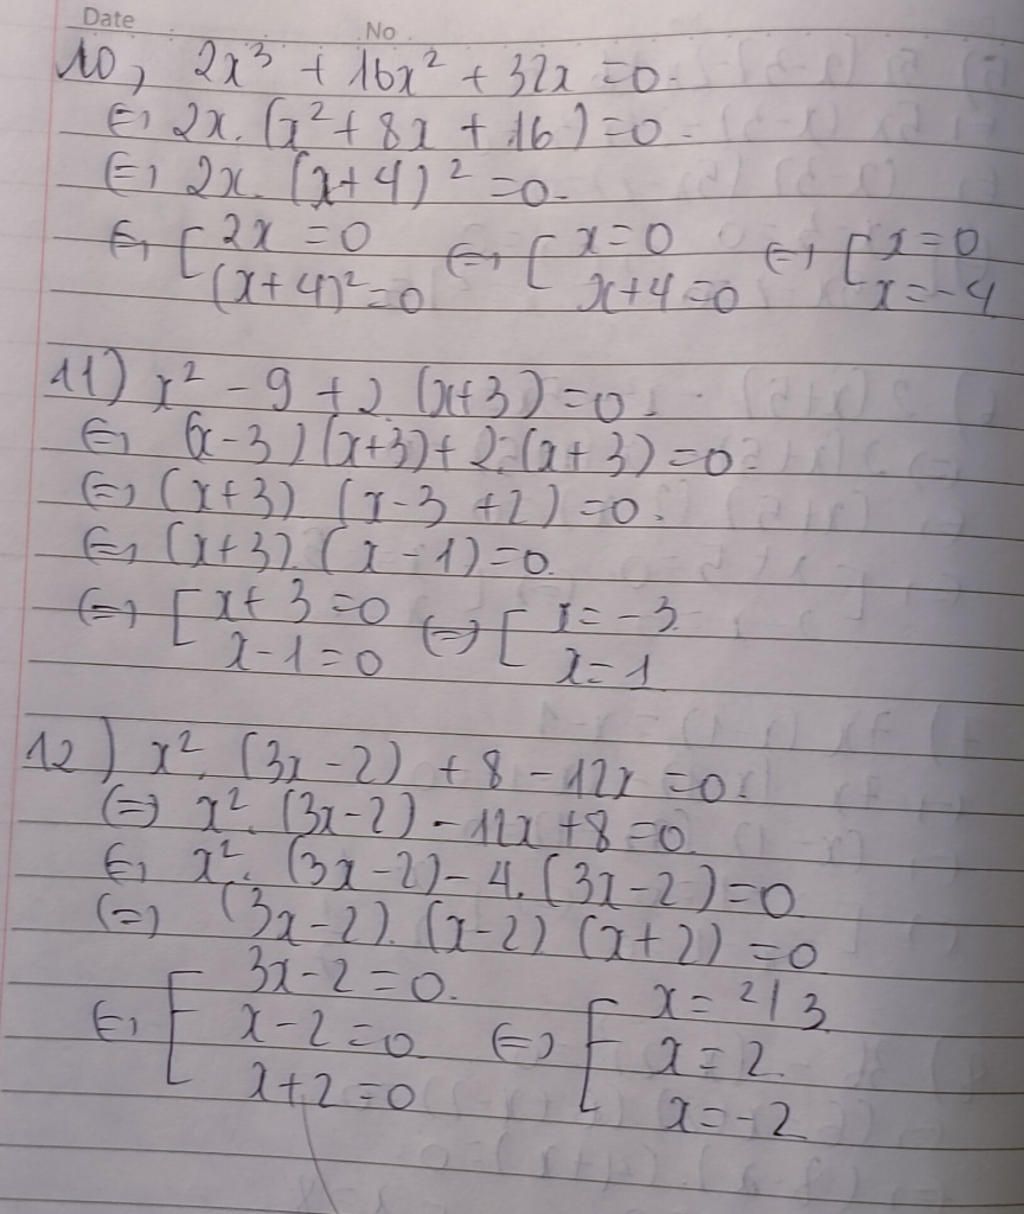 Date No.
10, 2x³ + 16x² + 32x = 0.
⇔ 2x. (x² + 8x + 16) = 0.
⇔ 2x. (x+4)² = 0.
⇔ [ 2x = 0 ⇔ [ x = 0 ⇔ [ x = 0
(x+4)² = 0 x+4 = 0 x = -4
11) x² - 9 + 2 (x+3) = 0.
⇔ (x-3) (x+3) + 2.(x+3) = 0.
⇔ (x+3) (x-3+2) = 0.
⇔ (x+3). (x-1) = 0.
⇔ [ x+3 = 0 ⇔ [ x = -3.
x-1 = 0 x = 1
12) x². (3x-2) + 8 - 12x = 0.
⇔ x². (3x-2) - 12x + 8 = 0.
⇔ x². (3x-2) - 4. (3x-2) = 0
⇔ (3x-2). (x-2) (x+2) = 0
⇔ [ 3x-2 = 0. ⇔ [ x = 2/3
x-2 = 0 x = 2.
x+2 = 0 x = -2